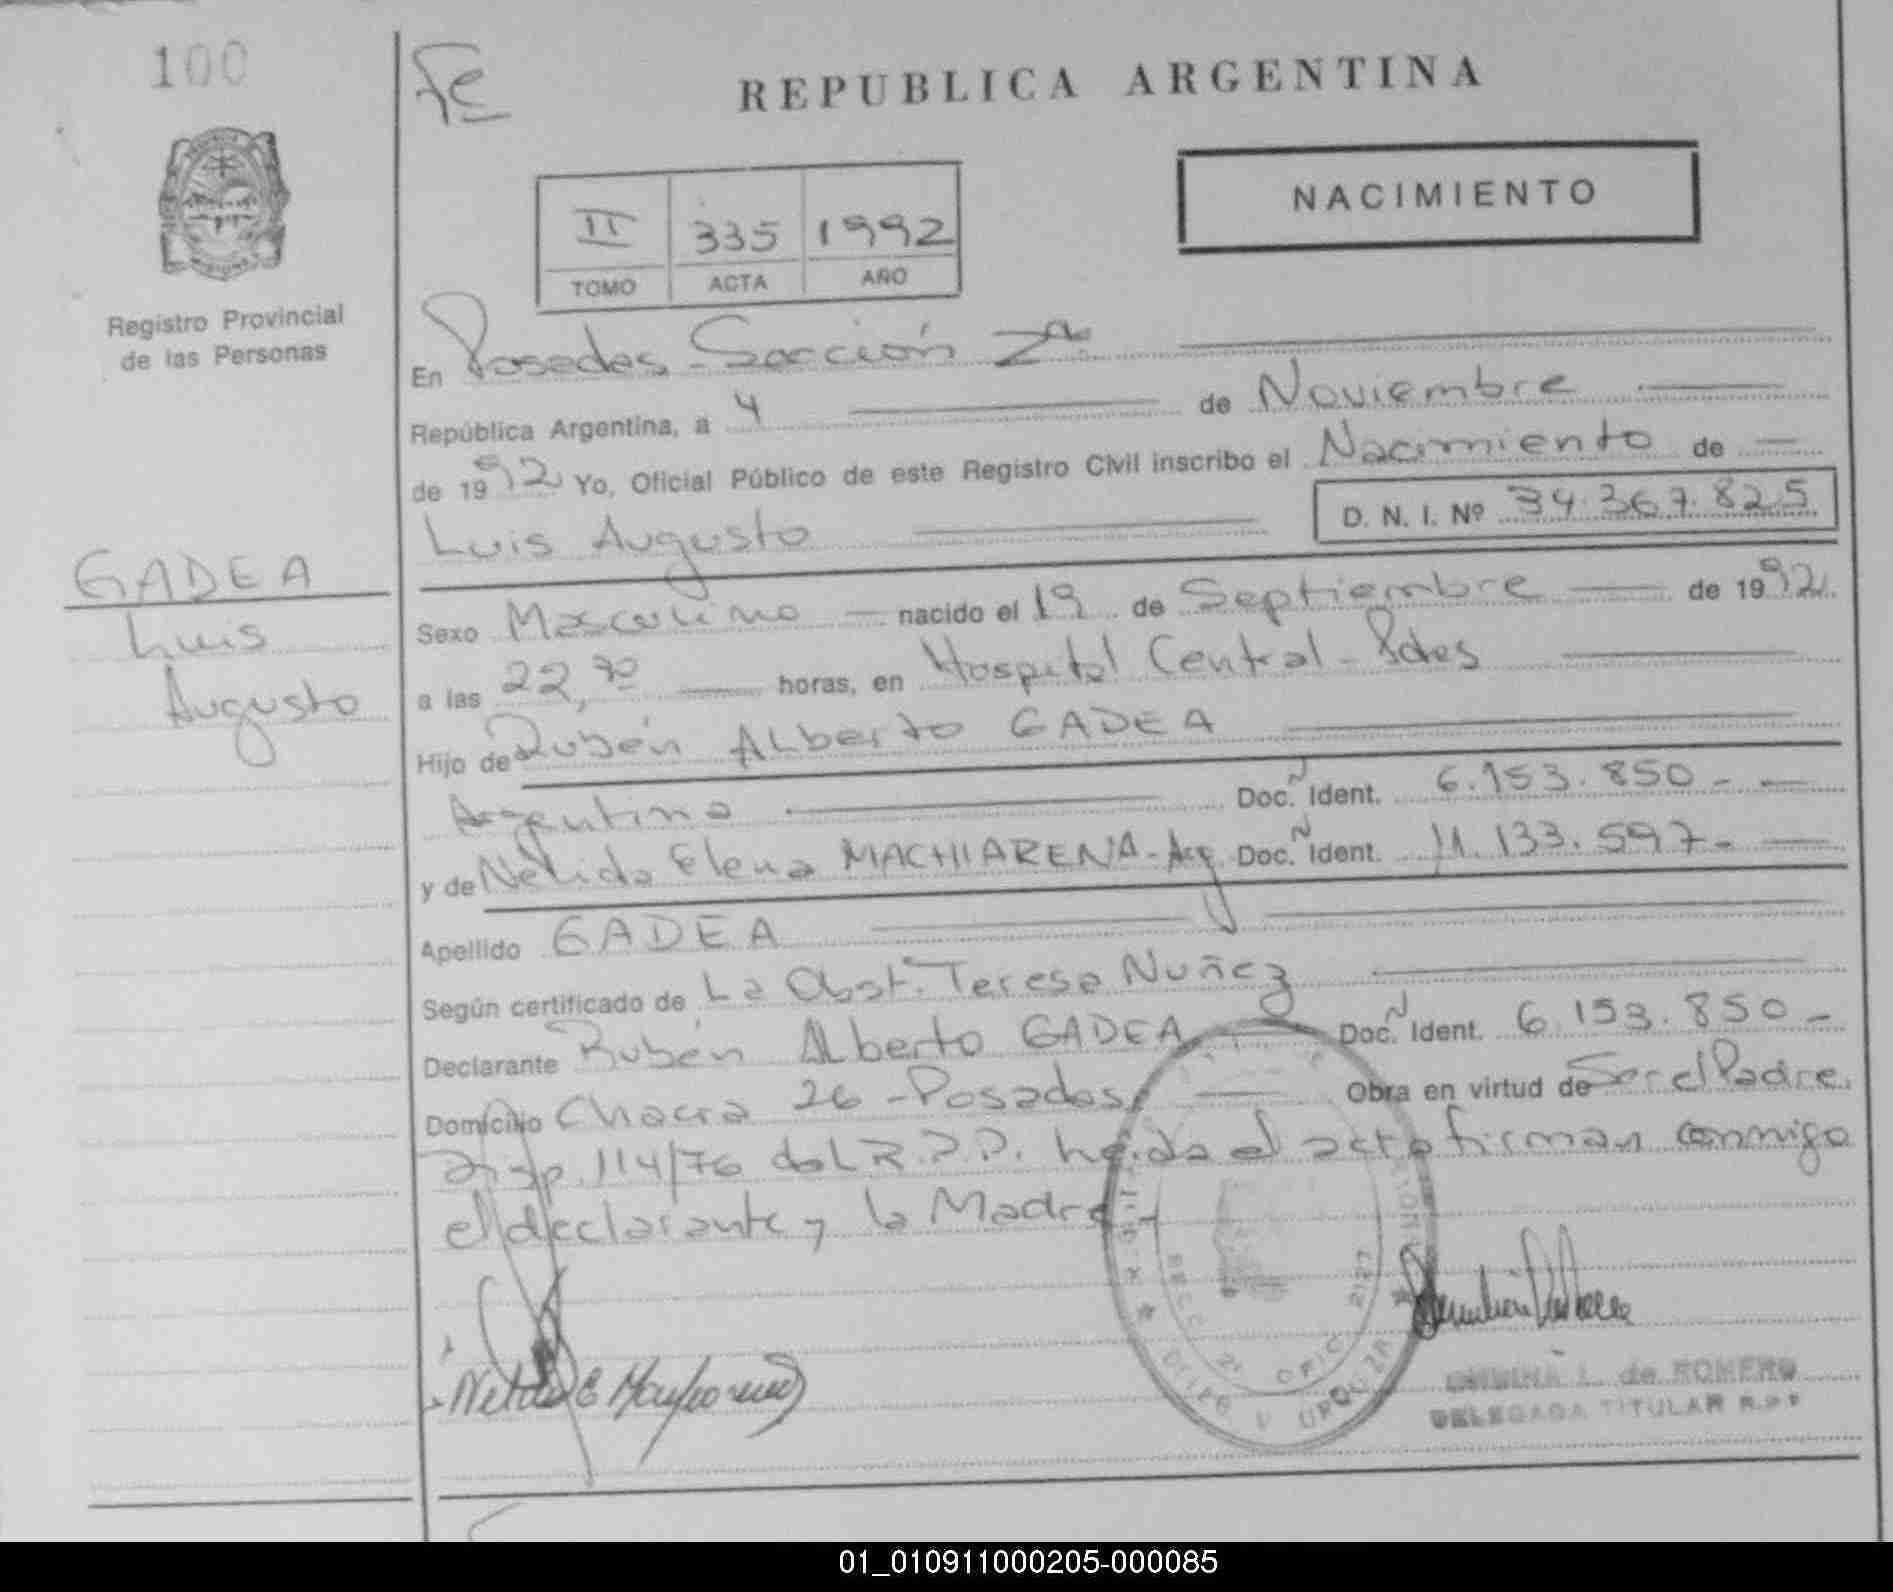 100
Fe
REPUBLICA ARGENTINA
NACIMIENTO
II 335 1992
TOMO ACTA AÑO
Registro Provincial
de las Personas
En Posadas - Sección 2da
República Argentina, a 4 de Noviembre
de 1992 Yo, Oficial Público de este Registro Civil inscribo el Nacimiento de
Luis Augusto D. N. I. Nº 34.367.825
GADEA
Luis
Augusto
Sexo Masculino nacido el 19 de Septiembre de 1992
a las 22, horas, en Hospital Central - Pdas
Hijo de Rubén Alberto GADEA
Argentina Doc. Ñ Ident. 6.153.850 -
y de Nélida Elena MACHIARENA - Arg Doc. Ñ Ident. 11.133.597 -
Apellido GADEA
Según certificado de La Obst. Teresa Nuñez
Declarante Rubén Alberto GADEA Doc. Ñ Ident. 6.153.850 -
Domicilio Chacra 26 - Posadas Obra en virtud de Ser el Padre.
Disp. 114/76 del R.P.P. leida el acta firman conmigo
el declarante y la Madre -
L. de ROMERO
DELEGADA TITULAR R.P.P
01_010911000205-000085